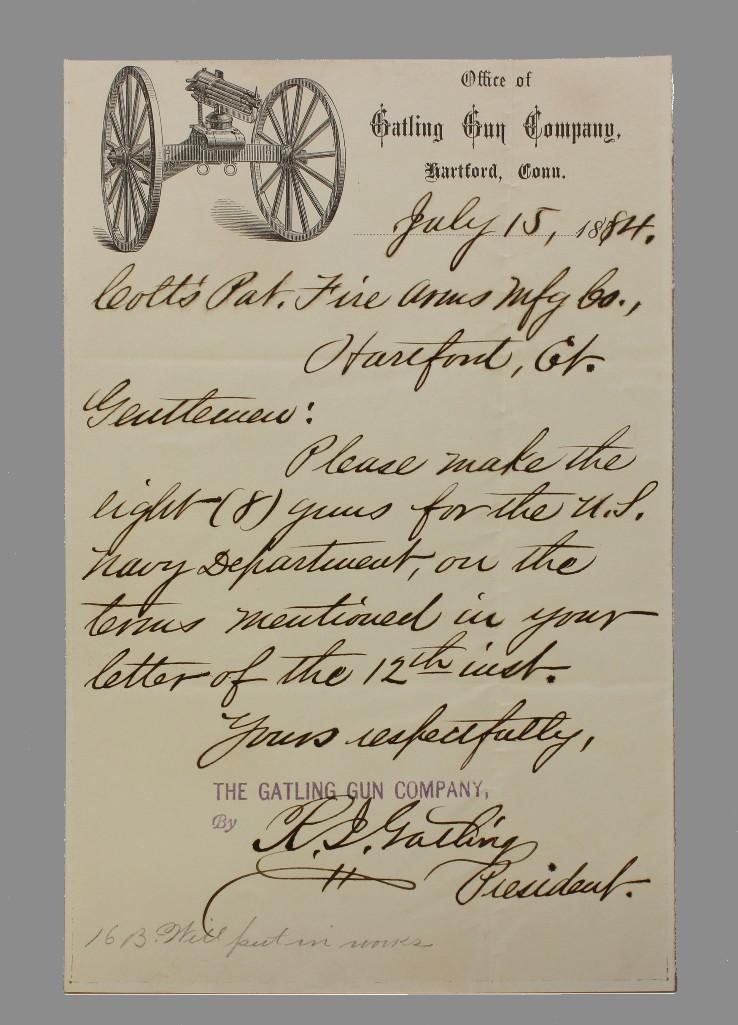 Office of
Gatling Gun Company,
Hartford, Conn.
July 15, 1884.
Colt's Pat. Fire Arms Mfg Co.,
Hartford, Ct.
Gentlemen:
Please make the
eight (8) guns for the U.S.
Navy Department, on the
terms mentioned in your
letter of the 12th inst.
Yours respectfully,
THE GATLING GUN COMPANY,
By R. J. Gatling
President.
16 B. Will put in works